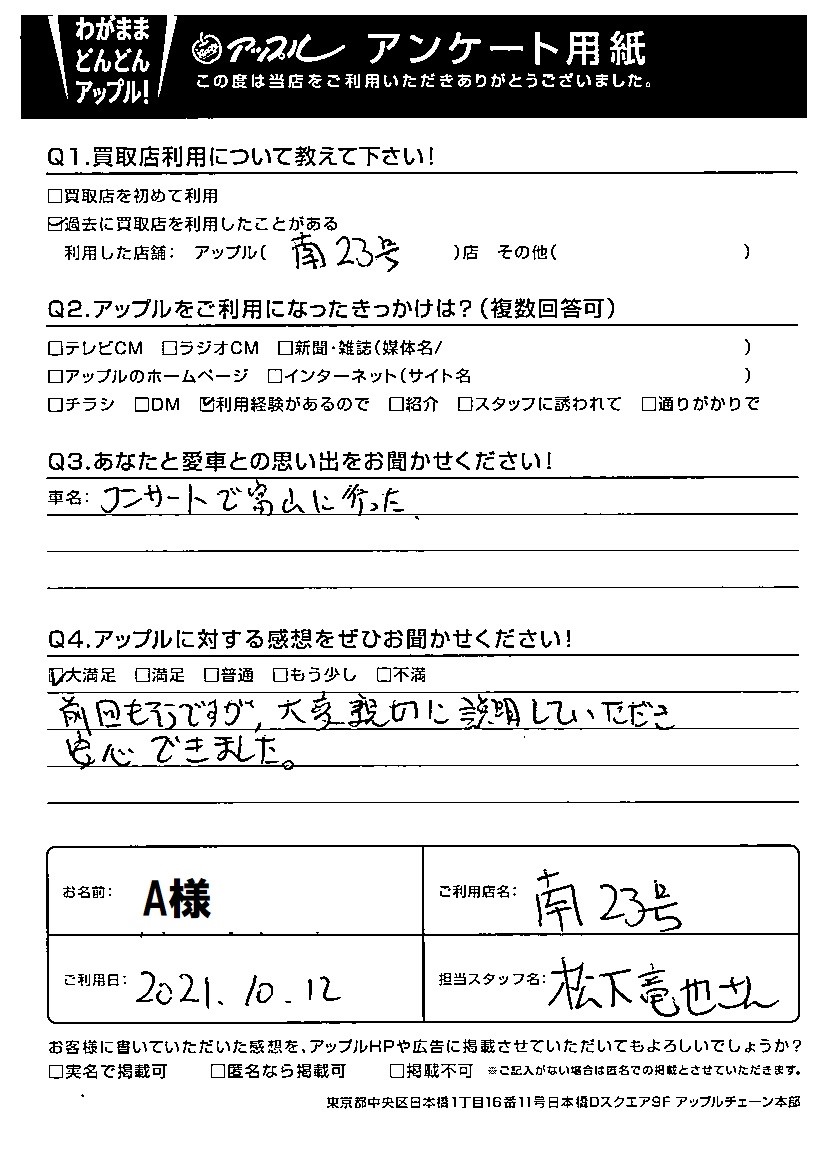 わがまま
どんどん
アップル!
アップル アンケート用紙
この度は当店をご利用いただきありがとうございました。
Q1.買取店利用について教えて下さい!
□買取店を初めて利用
☑過去に買取店を利用したことがある
利用した店舗: アップル( 南23号 )店 その他( )
Q2.アップルをご利用になったきっかけは?(複数回答可)
□テレビCM □ラジオCM □新聞・雑誌(媒体名/ )
□アップルのホームページ □インターネット(サイト名 )
□チラシ □DM ☑利用経験があるので □紹介 □スタッフに誘われて □通りがかりで
Q3.あなたと愛車との思い出をお聞かせください!
車名: コンサートで富山に行った
Q4.アップルに対する感想をぜひお聞かせください!
☑大満足 □満足 □普通 □もう少し □不満
前回もそうですが、大変親切に説明していただき
安心できました。
お名前: A様
ご利用店名: 南23号
ご利用日: 2021.10.12
担当スタッフ名: 松下竜也さん
お客様に書いていただいた感想を、アップルHPや広告に掲載させていただいてもよろしいでしょうか?
□実名で掲載可 □匿名なら掲載可 □掲載不可 ※ご記入がない場合は匿名での掲載とさせていただきます。
東京都中央区日本橋1丁目16番11号日本橋Dスクエア9F アップルチェーン本部